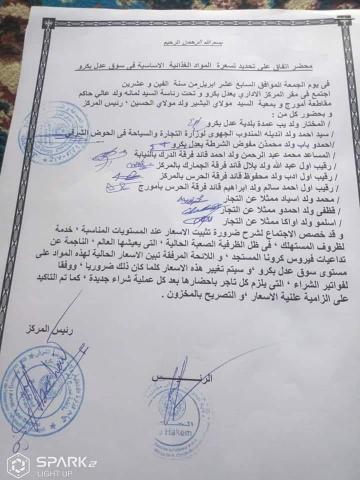 بسم الله الرحمن الرحيم
محضر اتفاق على تحديد تسعرة المواد الغذائية الاساسية في سوق عدل بكرو
في يوم الجمعة الموافق السابع عشر ابريل من سنة الفين و عشرين
اجتمع في مقر المركز الاداري بعدل بكرو و تحت رئاسة السيد لمانه ولد عالي حاكم
مقاطعة أمورج و بمعية السيد مولاي البشير ولد مولاي الحسين ' رئيس المركز
و بحضور كل من :
/ المختار ولد يب عمدة بلدية عدل بكرو
/ سيد احمد ولد الديله المندوب الجهوي لوزارة التجارة والسياحة في الحوض الشرقي
/ احمدو باب ولد محمدن مفوض الشرطة بعدل بكرو
/ المساعد محمد عبد الرحمن ولد احمد قائد فرقة الدرك بالنيابة
/ رقيب اول عبد الله ولد بلال قائد فرقة الجمارك بالمركز
/ رقيب اول ادب ولد محفوظ قائد فرقة الحرس بالمركز
/ رقيب اول احمد سالم ولد ابراهيم قائد فرقة الحرس بأمورج
/ محمد ولد اسياد ممثلا عن التجار
/ فظفى ولد احمدو ممثلا عن التجار
/ اسلمو ولد اواكا ممثلا عن التجار
و قد خصص الاجتماع لشرح ضرورة تثبيت الاسعار عند المستويات المناسبة ' خدمة
لظروف المستهلك ' في ظل الظرفية الصعبة الحالية ' التي يعيشها العالم ' الناجمة عن
تداعيات فيروس كرونا المستجد ' و اللائحة المرفقة تبين الاسعار الحالية لهذه المواد على
مستوى سوق عدل بكرو ' و سيتم تغيير هذه الاسعار كلما كان ذلك ضروريا ' ووفقا
لفواتير الشراء ' التي يلزم كل تاجر باحضارها بعد كل عملية شراء جديدة ' كما تم التاكيد
على الزامية علنية الاسعار ' و التصريح بالمخزون .
رئيس المركز
الرئيس
Hakem
SPARK 2
LIGHT UP